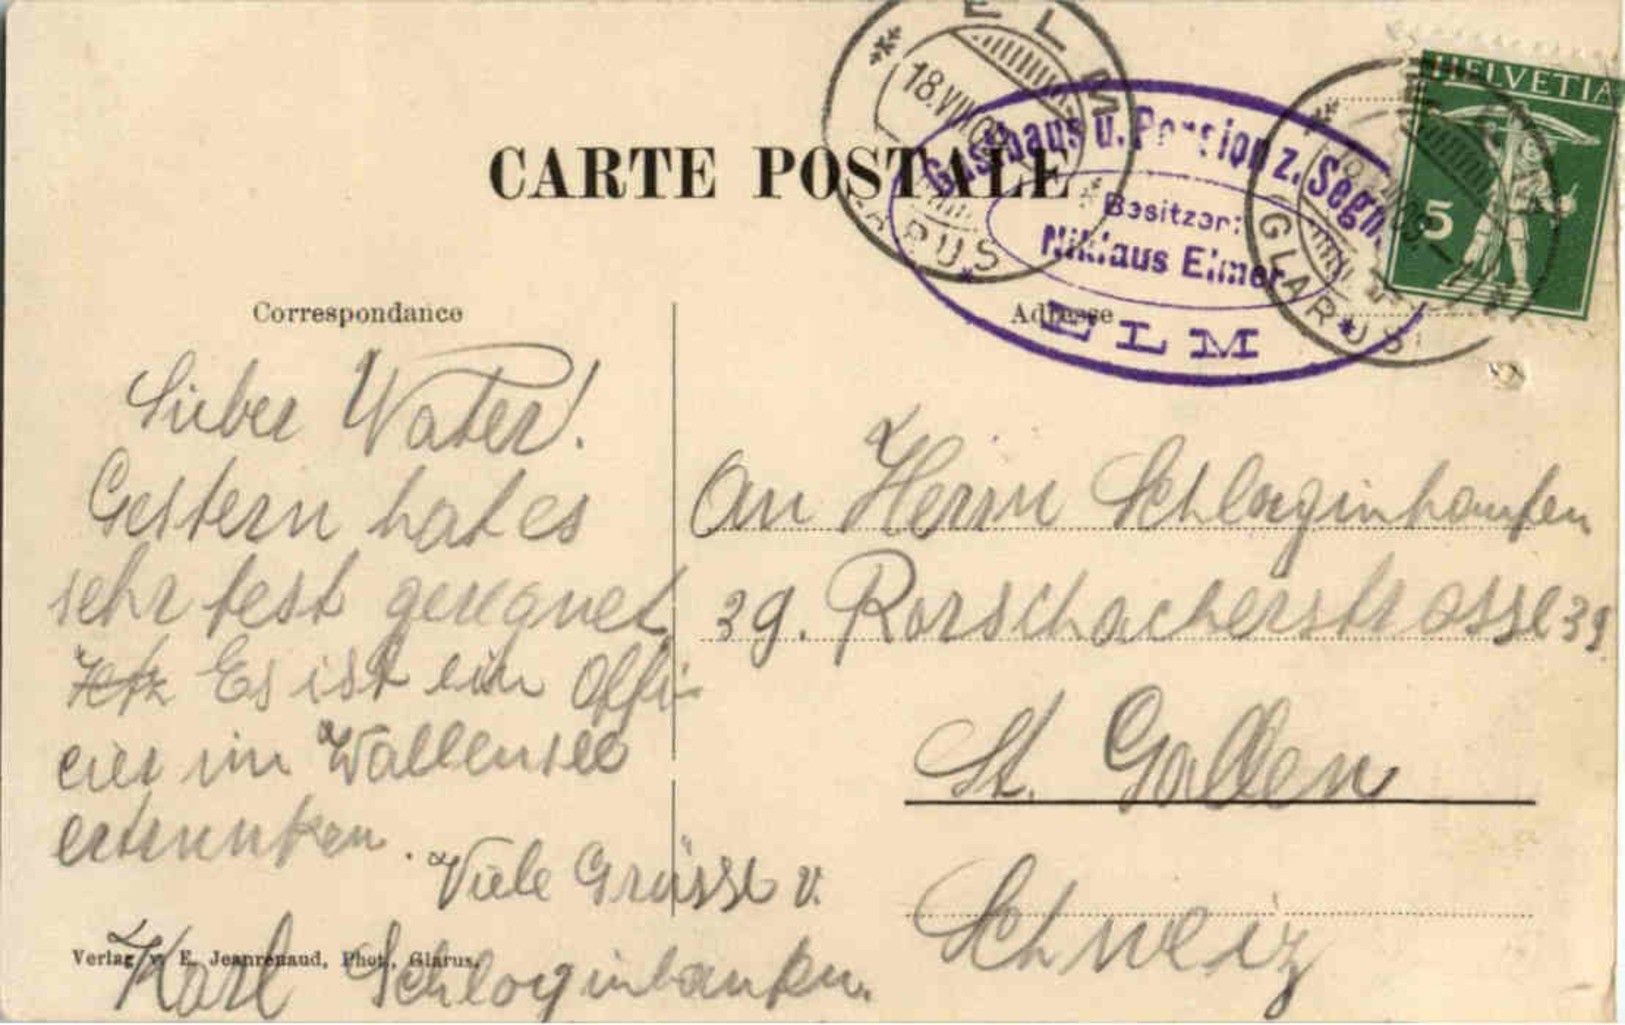 CARTE POSTALE
ELM
18.VIII.09
GLARUS
Gasthaus u. Pension z. Segnes
Besitzer:
Niklaus Elmer
ELM
HELVETIA
5
GLARUS
Correspondance
Adresse
Lieber Vater!
Gestern hat es
sehr fest geregnet
Jetz Es ist ein Offi-
cier im Wallensee
ertrunken.
Viele Grüsse v.
Karl Schlaginhaufen.
An Herrn Schlaginhaufen
39. Rorschacherstrasse 39
St. Gallen
Schweiz
Verlag v. E. Jeanrenaud, Phot., Glarus.